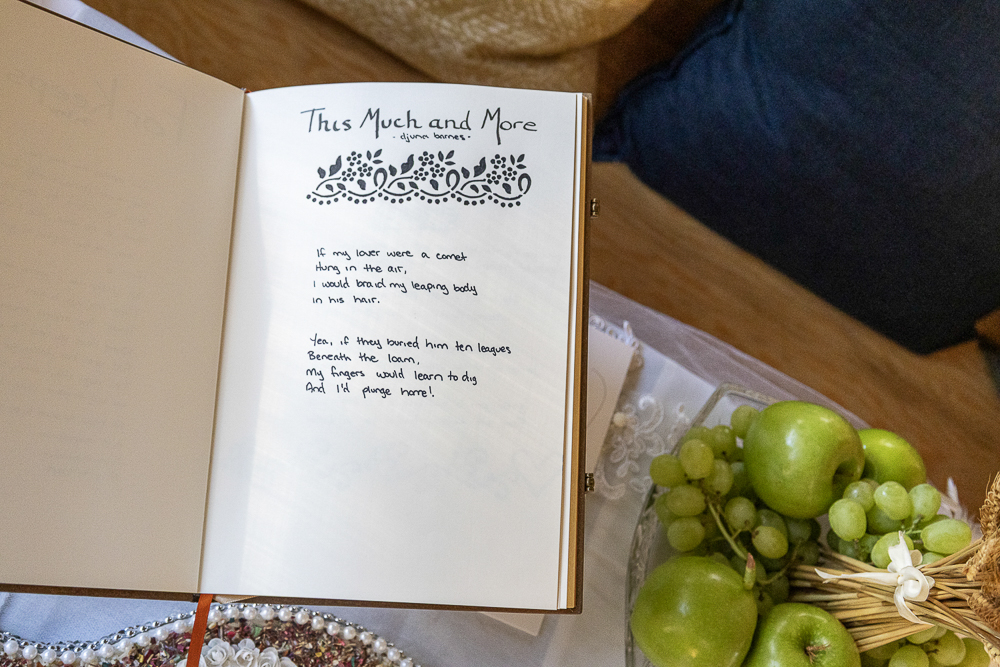 This Much and More
- djuna barnes -
If my lover were a comet
Hung in the air,
I would braid my leaping body
in his hair.
Yea, if they buried him ten leagues
Beneath the loam,
My fingers would learn to dig
And I'd plunge home!.